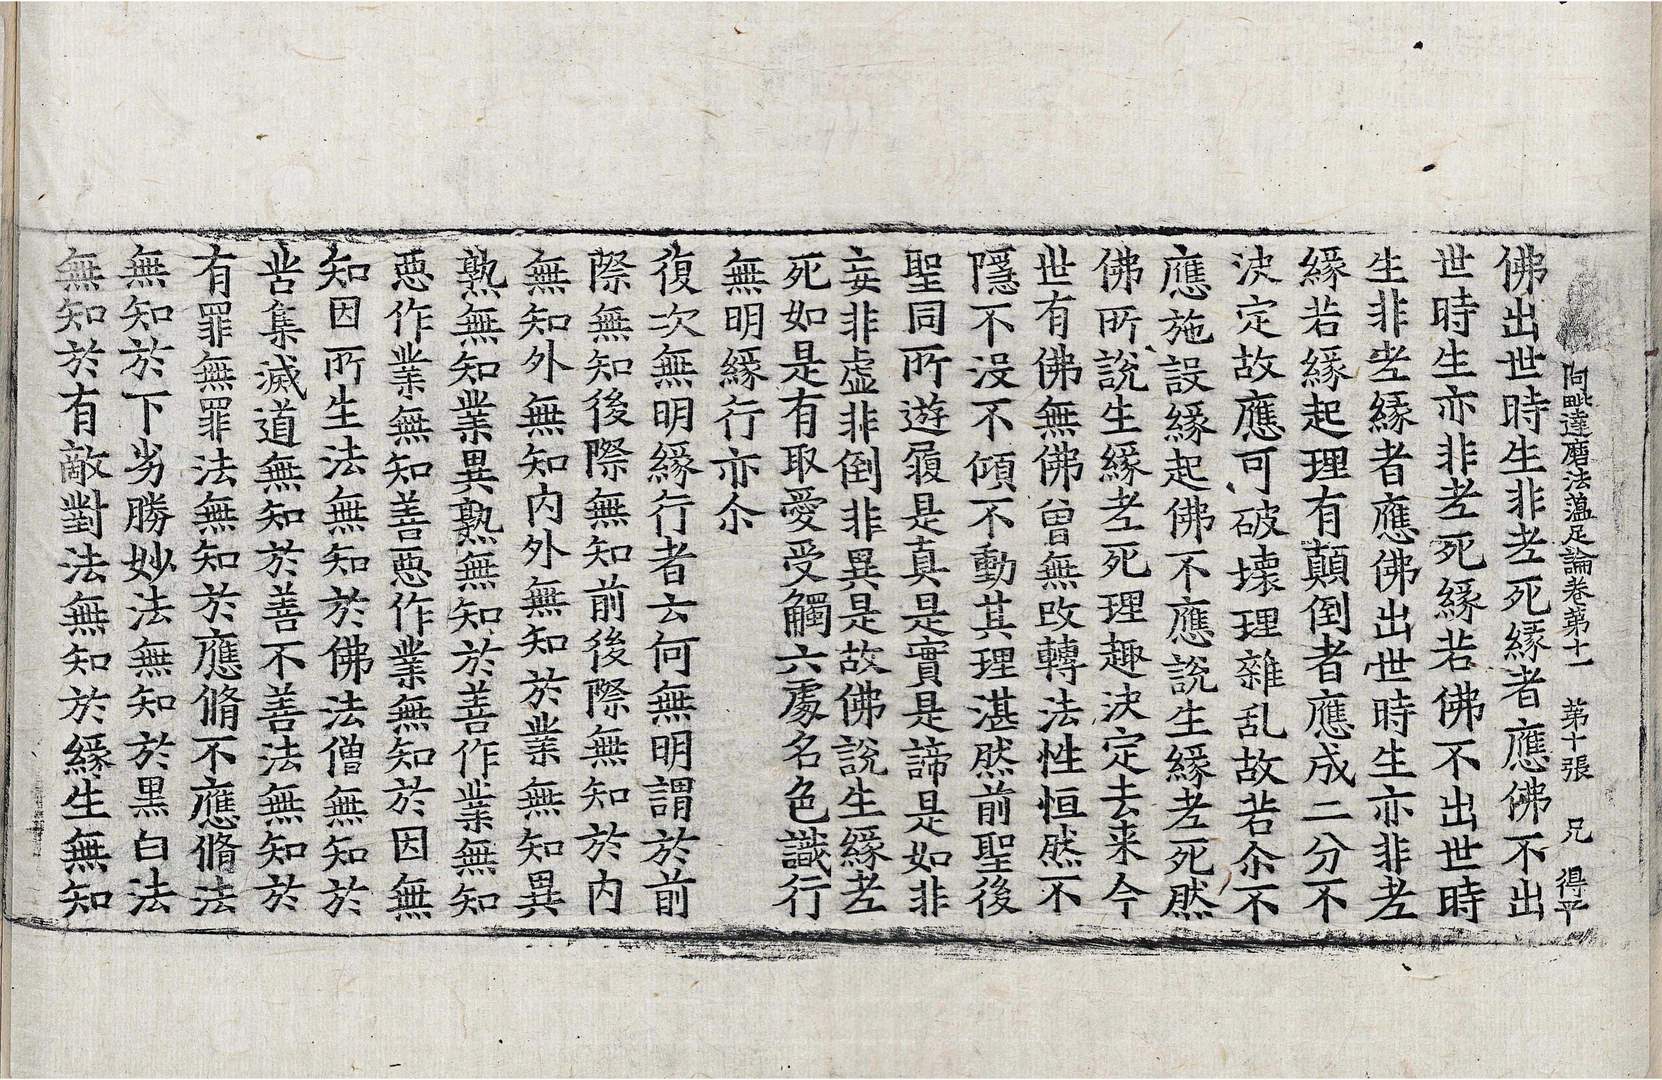 阿毗達磨法蘊足論卷第十一　第十張　兄　得平
佛出世時生非老死縁者應佛不出
世時生亦非老死縁若佛不出世時
生非老縁者應佛出世時生亦非老
縁若縁起理有顛倒者應成二分不
決定故應可破壞理雜乱故若尒不
應施設縁起佛不應說生縁老死然
佛所說生縁老死理趣決定去来今
世有佛無佛曾無改轉法性恒然不
隱不沒不傾不動其理湛然前聖後
聖同所遊履是真是實是諦是如非
妄非虛非倒非異是故佛說生縁老
死如是有取愛受觸六處名色識行
無明縁行亦尒
復次無明縁行者云何無明謂於前
際無知後際無知前後際無知於内
無知外無知内外無知於業無知異
熟無知業異熟無知於善作業無知
惡作業無知善惡作業無知於因無
知因所生法無知於佛法僧無知於
苦集滅道無知於善不善法無知於
有罪無罪法無知於應脩不應脩法
無知於下劣勝妙法無知於黒白法
無知於有敵對法無知於縁生無知